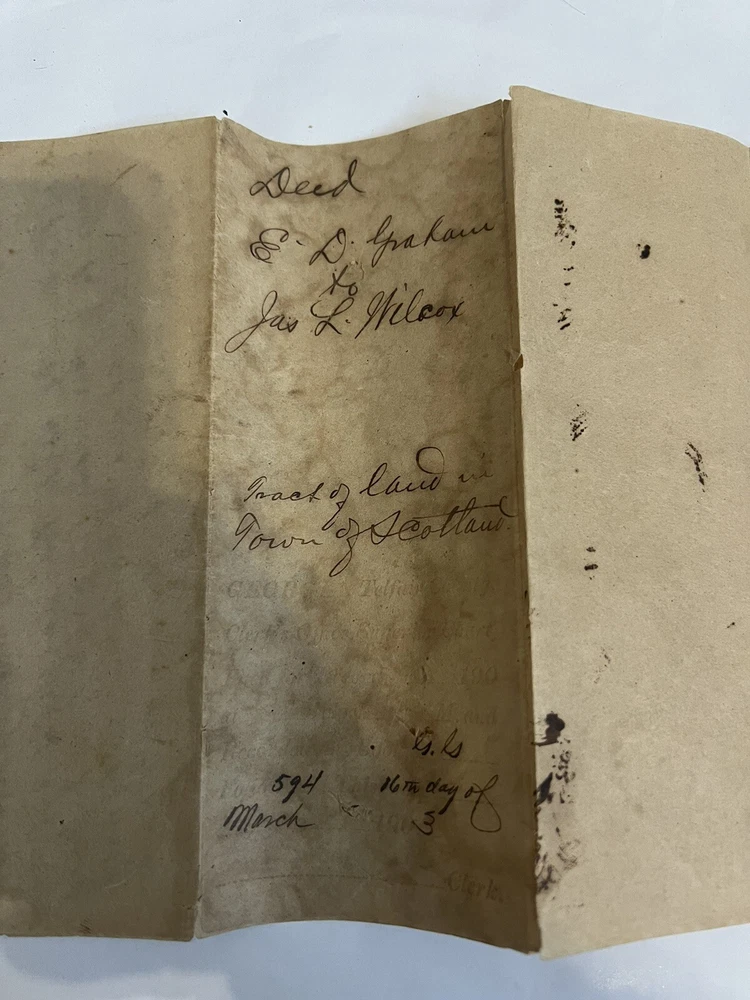 Deed
E. D. Graham
to
Jas L. Wilcox
Tract of land in
Town of Scotland.
GEORGIA Telfair
Clerk's Office Superior Court
190
at
and
Reco
594 16th day of
March 190 3
Clerk.